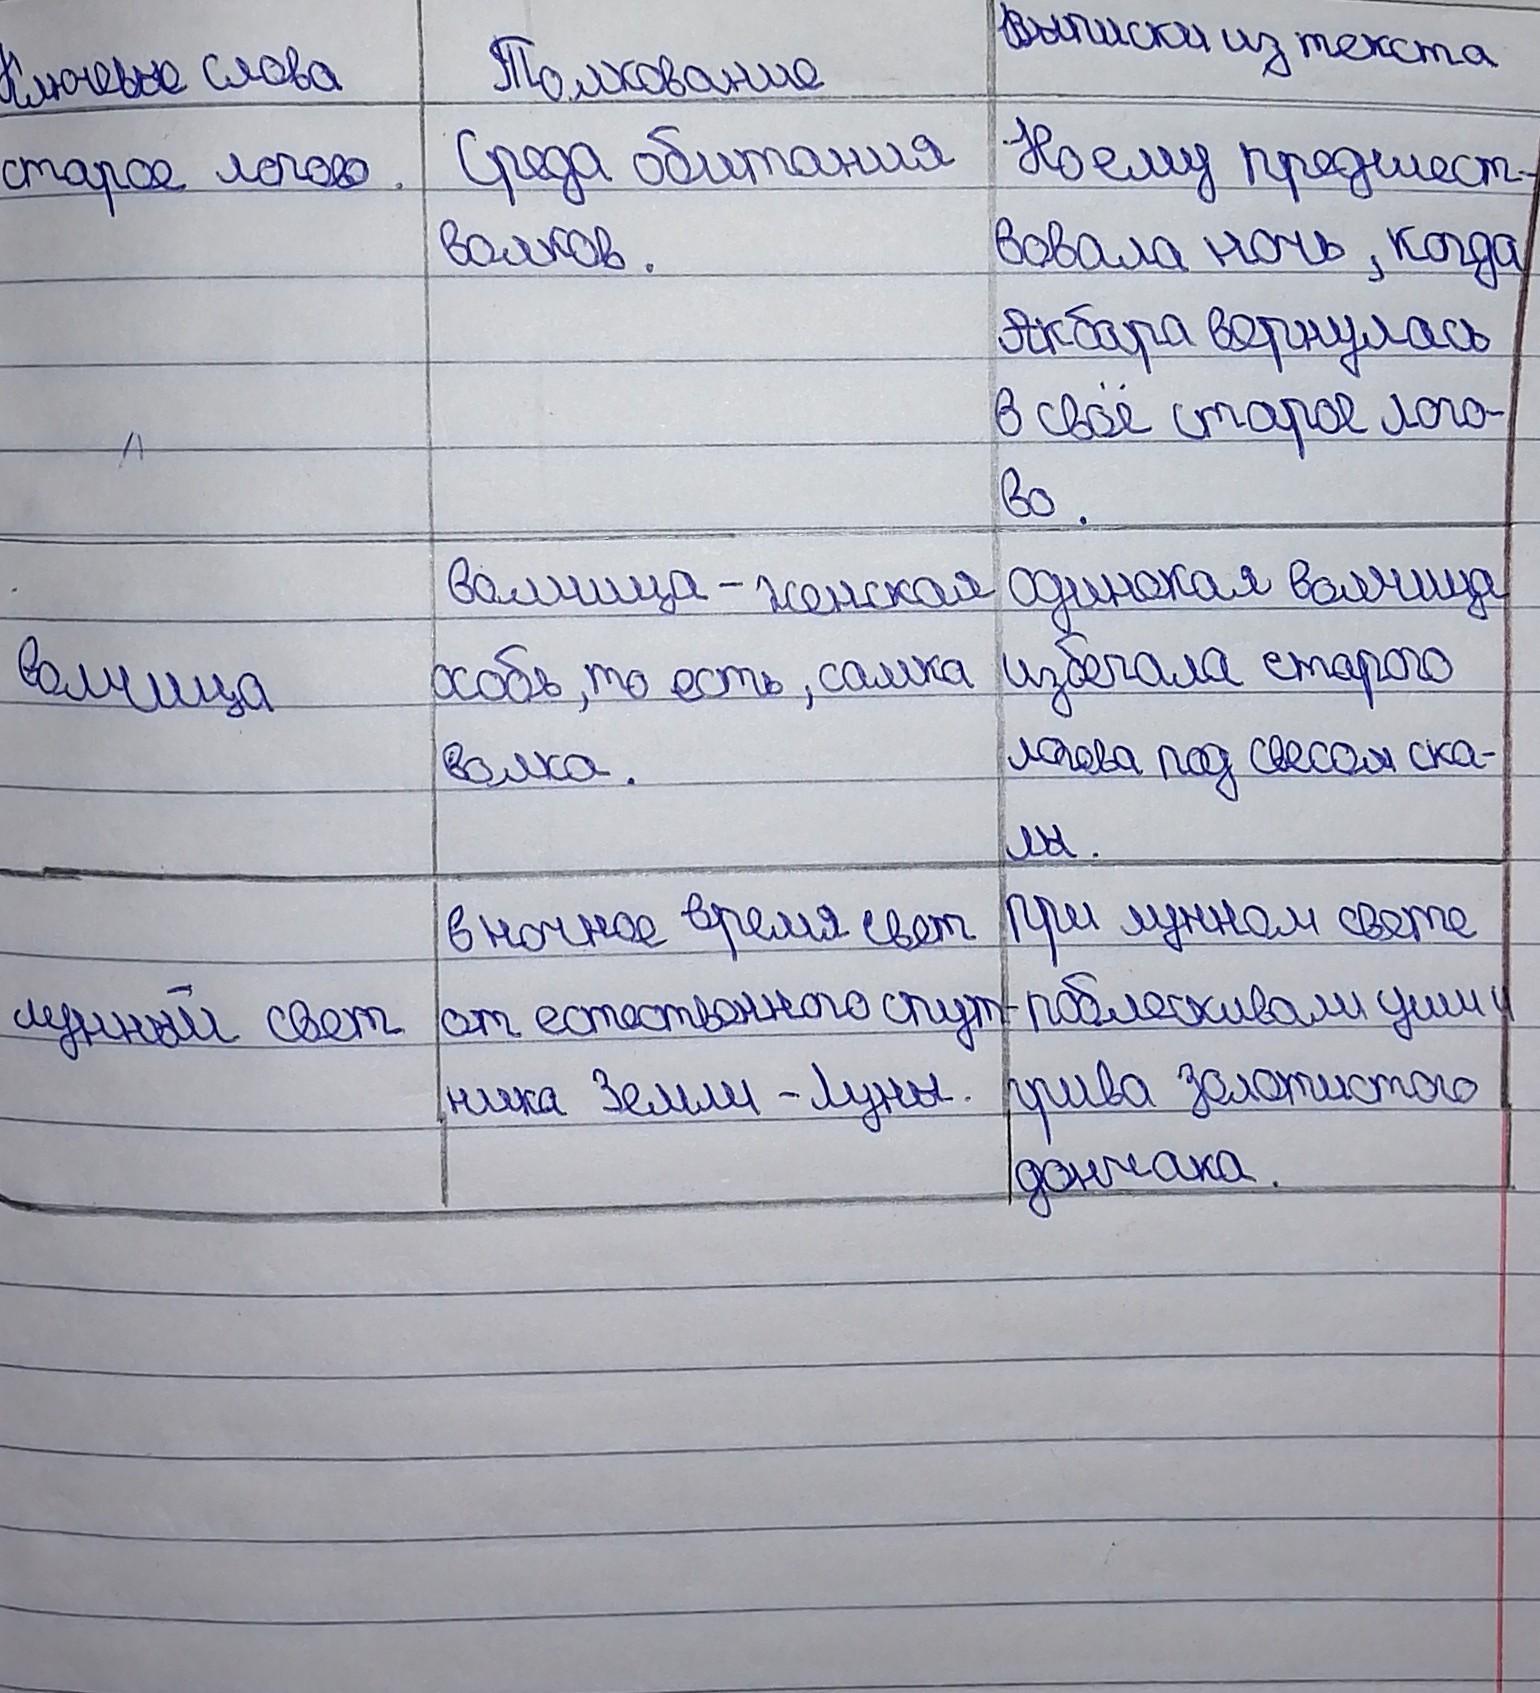 Ключевые слова
Толкование
Выписки из текста
старое логово.
Среда обитания
волков.
Но ему предшест-
вовала ночь, когда
Акбара вернулась
в своё старое лого-
во.
волчица
волчица - женская
особь, то есть, самка
волка.
одинокая волчица
избегала старого
логова под свесом ска-
лы.
лунный свет
в ночное время свет
от естественного спут-
ника Земли - Луны.
при лунном свете
поблескивали уши и
грива золотистого
дончака.